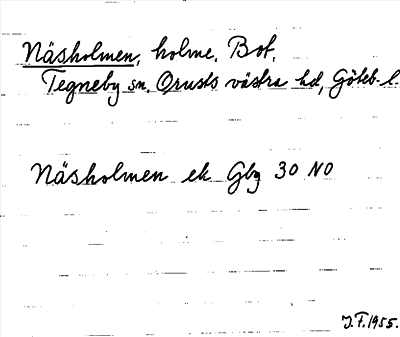 Näsholmen, holme, Bot,
Tegneby sn. Orusts västra hd, Göteb. l.
Näsholmen ek Gbg 30 NO
J.F. 1955.